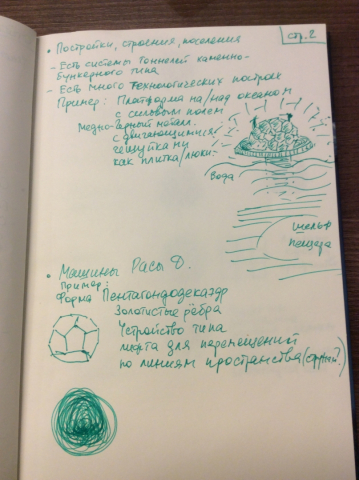 стр. 2
• Постройки, строения, поселения
- Есть системы тоннелей каменно-
бункерного типа
- Есть много технологических построек
Пример: Платформа на/над океаном
с силовым полем
Медно-чёрный металл.
с двигающимися
чешуйками
как плитка/люки
вода
шельф
пещера
• Машины Расы D.
Пример:
Форма Пентагондодекаэдр
Золотистые рёбра
Устройство типа
лифта для перемещений
по линиям пространства